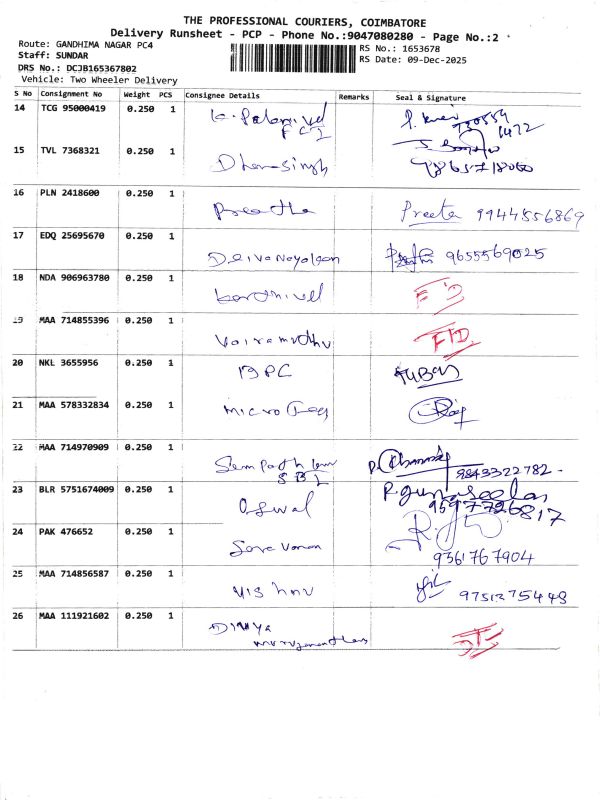 THE PROFESSIONAL COURIERS, COIMBATORE
Delivery Runsheet - PCP - Phone No.:9047080280 - Page No.:2
Route: GANDHIMA NAGAR PC4
Staff: SUNDAR
DRS No.: DCJB165367802
Vehicle: Two Wheeler Delivery
RS No.: 1653678
RS Date: 09-Dec-2025
S No Consignment No Weight PCS Consignee Details Remarks Seal & Signature
14 TCG 95000419 0.250 1 K. Palanivel
FCI
15 TVL 7368321 0.250 1 Dhansingh
16 PLN 2418600 0.250 1 Preetha Preeta 99448556869
17 EDQ 25695670 0.250 1 Deivanayagan 9655569025
18 NDA 906963780 0.250 1
19 MAA 714855396 0.250 1 Vairamuthu FTD.
20 NKL 3655956 0.250 1
21 MAA 578332834 0.250 1 Micro
22 MAA 714970909 0.250 1 9843322782 -
SBI
23 BLR 5751674009 0.250 1 Oswal R. gunaseelan
9597726817
24 PAK 476652 0.250 1 Saravanan
9361767904
25 MAA 714856587 0.250 1 Vishnu 9751275448
26 MAA 111921602 0.250 1 Divya